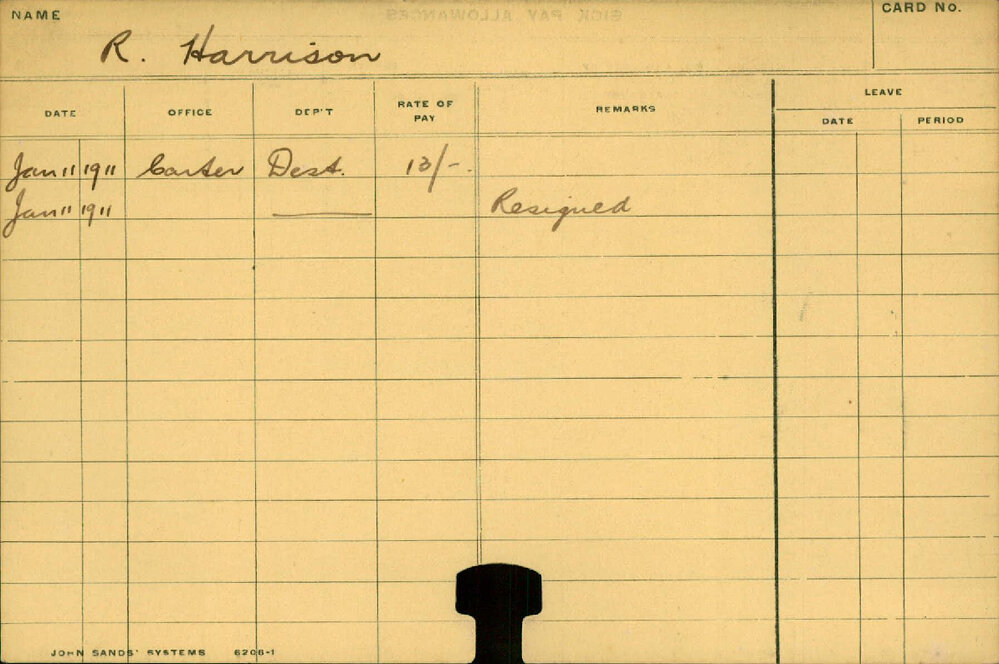 NAME
R. Harrison
CARD No.
DATE OFFICE DEP'T RATE OF PAY REMARKS LEAVE
DATE PERIOD
Jan 11 1911 Carter Dest. 13/-.
Jan 11 1911 Resigned
JOHN SANDS' SYSTEMS 6206-1